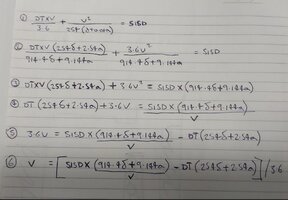 ① DTXV/3.6 + V²/254(δ+0.01a) = SISD
② DTXV(254δ+2.54a)/914.4δ+9.144a + 3.6V²/914.4δ+9.144a = SISD
③ DTXV(254δ+2.54a) + 3.6V² = SISD×(914.4δ+9.144a)
④ DT(254δ+2.54a) + 3.6V = SISD×(914.4δ+9.144a)/V
⑤ 3.6V = SISD×(914.4δ+9.144a)/V - DT(254δ+2.54a)
⑥ V = [SISD×(914.4δ+9.144a)/V - DT(254δ+2.54a)]/3.6